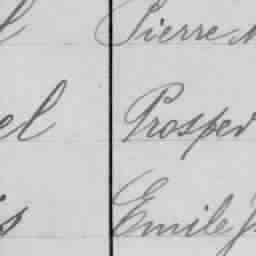 Pierre
el Prosper
Emile J